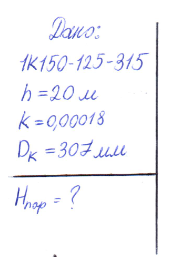 Дано:
1К150-125-315
h = 20 м
К = 0,00018
Dк = 307 мм
Нпар = ?